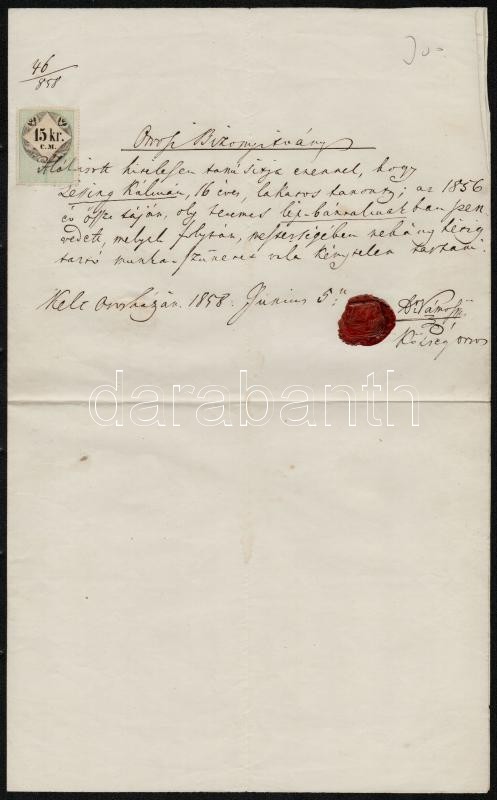 46/858
15 kr.
C.M.
Orvosi Bizonyitvány
Alálirott hitelesen tanúsitja ezennel, hogy
Lessing Kálmán, 16 éves, lakatos tanoncz; az 1856
év ősze táján, oly tetemes ban szen
vedett, melynek folytán, mesterségében néhány
tartó munka-szünetet vala kénytelen tartani.
Kelt Orosházán 1858. Junius 5.
Község orvos
darabanth